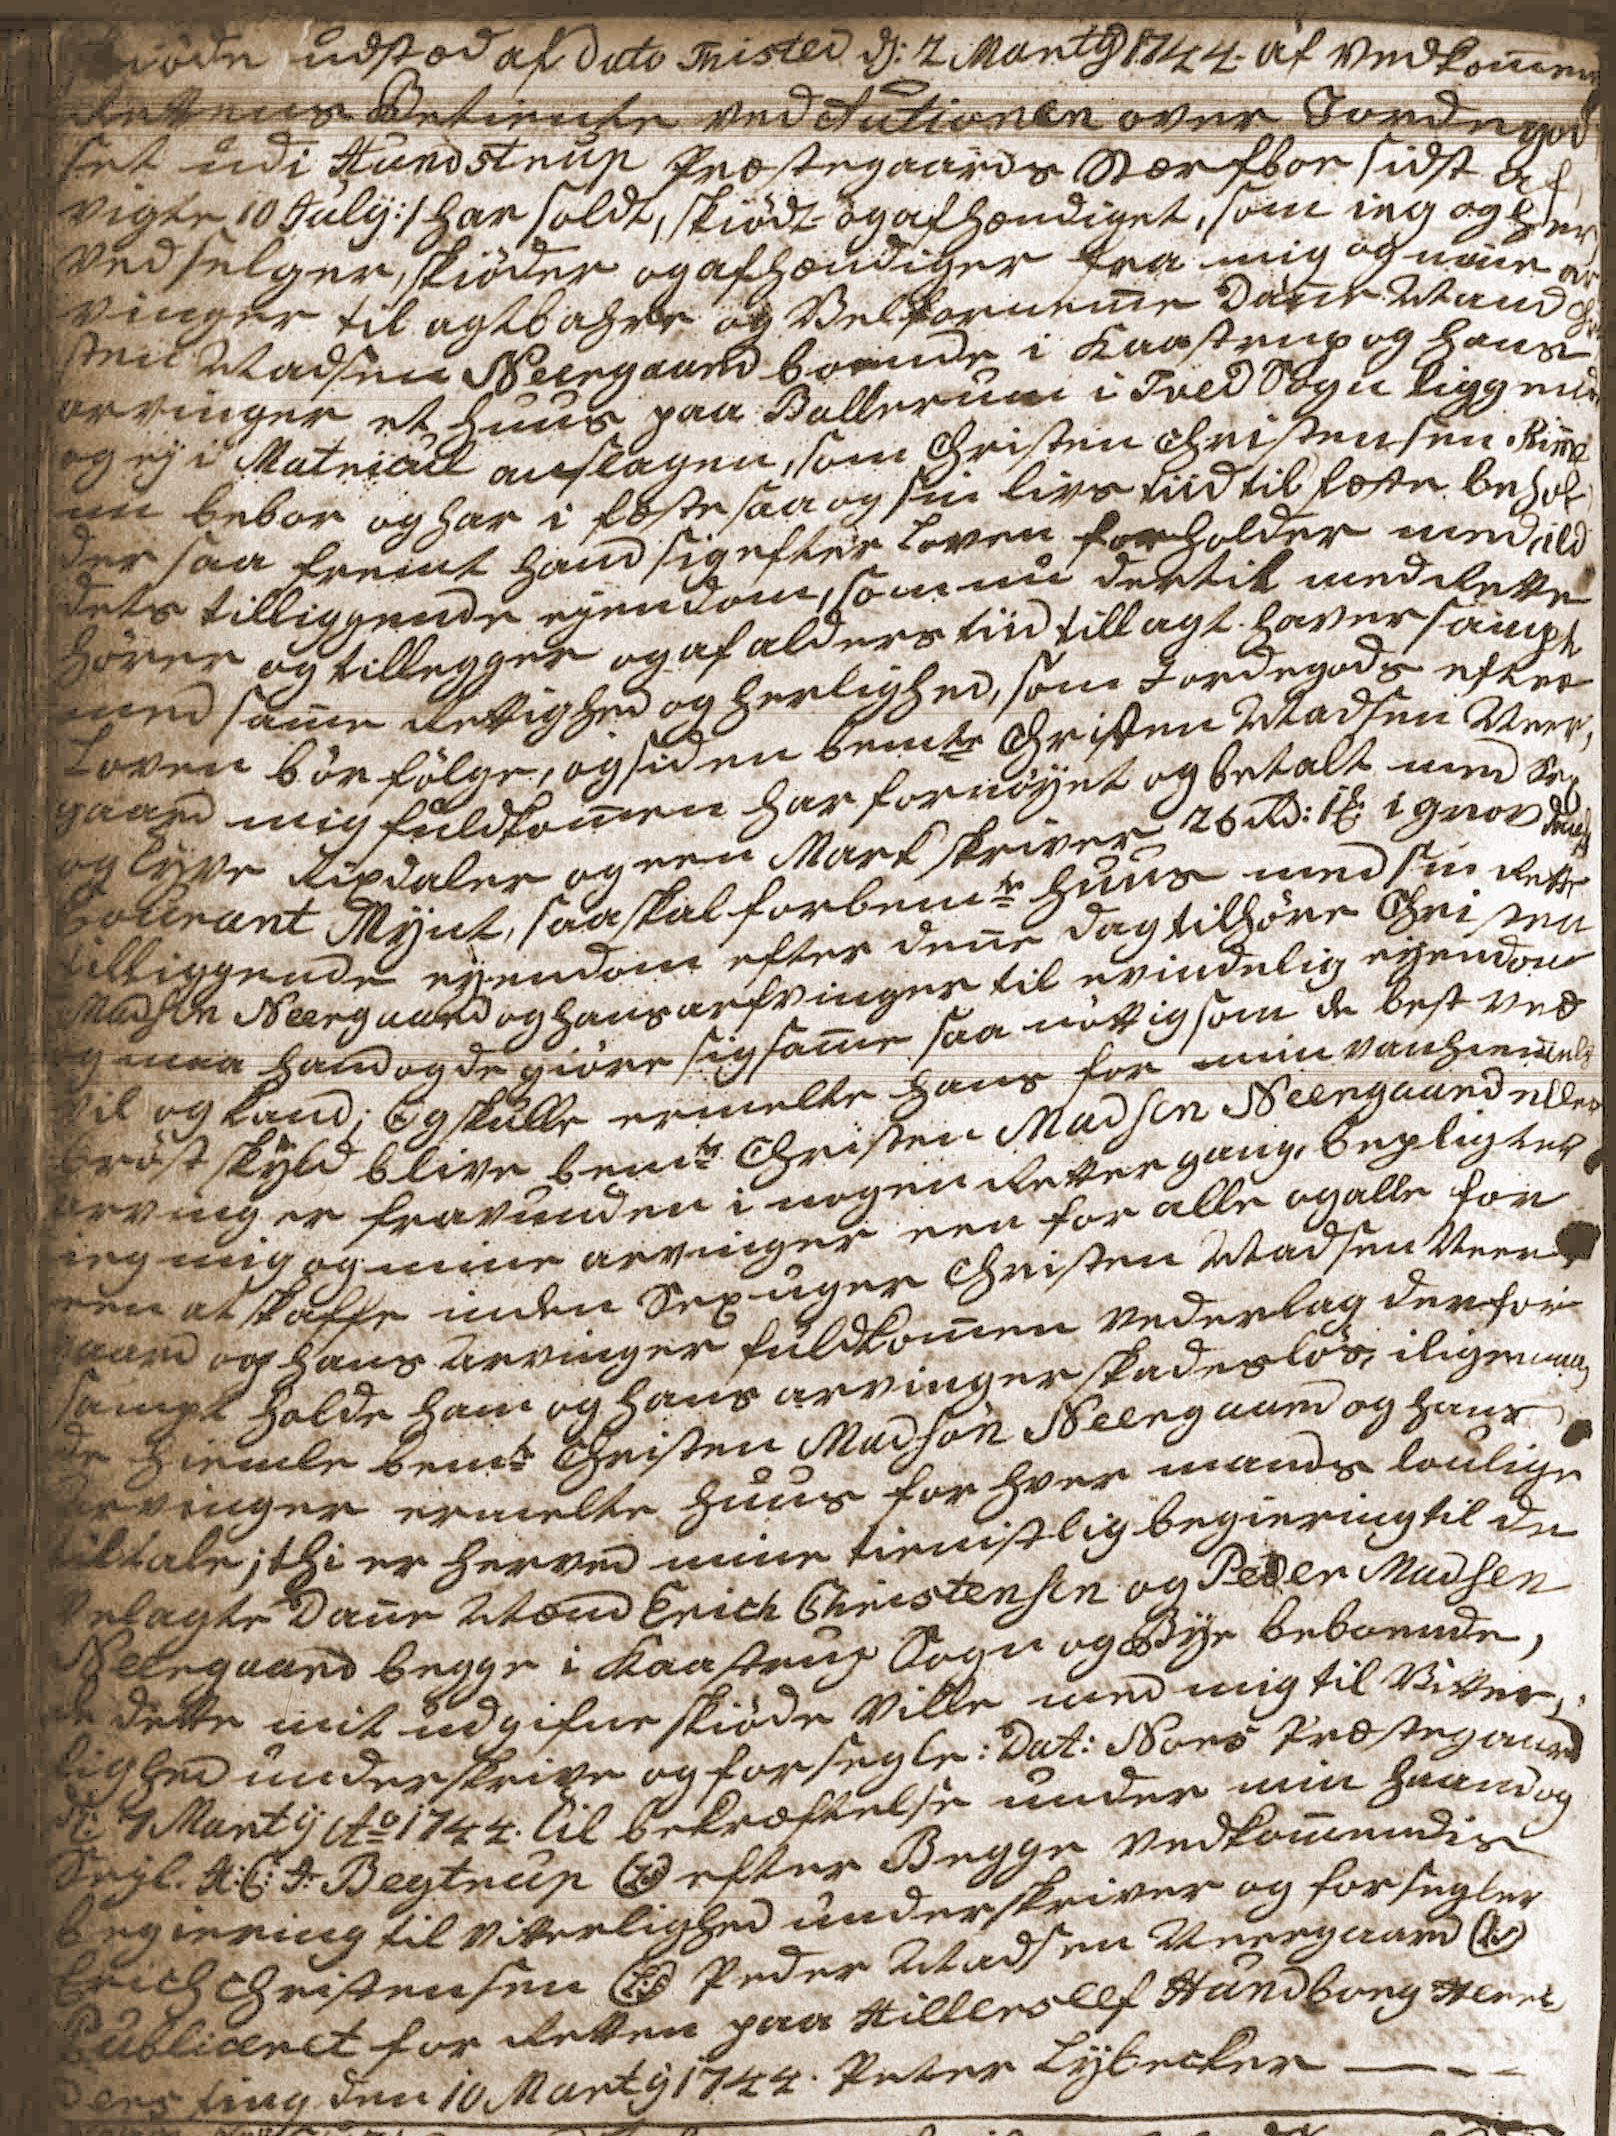 skiøde udstæd af Dato Tristed d: 2 Marty 1744. af Vedkommen
Rettens Betiente ved Autionen over Jordegod
set udi Hundstrup Præstegaards Stærfboe sidst af,
vigte 10 July:/ har soldt, skiødt og afhændiget, som ieg og her
ved selger, skiøder og afhændiger fra mig og mine ar
vinger til agtbahre og Velforneme Dane Mand Chri
sten Madsen Neergaard boende i Kaastrup og hans
arvinger et huus paa Ballerum i Tved Sogn liggende
og ej i Matricul anslagen, som Christen Christensen
nu beboer og har i fæste saa og sin livs tiid til fæste behol
der saa fremt hand sig efter Loven forholder med ald
dets tilliggende ejendom, som nu dertil med Rette
hører og tillegger og af alders tiid tillagt haver sampt
med same Rettighed og herlighed, som Jordegods efter
Loven bør følge, og siden bemte Christen Madsen Neer,
gaard mig fuldkomen har fornøyet og betalt med Sex
og Tyve Rixdaler og een Mark skriver 26 Rd: 1 ß i grov dansk
Courant Mynt, saa skal forbemte huus med sin Rette
tilliggende eyendom efter dene dag tilhøre Christen
Madsen Neergaard og hans arfvinger til evindelig eyendom
og maa hand og de giøre sig same saa nøttig som de best ved
vil og kand; Og skulle ermelte huus for min vanhiemels
brøst skyld blive bemte Christen Madsen Neergaard eller
arvinger fravunden i nogen Rettergang, bepligter
ieg mig og mine arvinger een for alle og alle for
een at skaffe inden Sex uger Christen Madsen Neer
gaard og hans arvinger fuldkomen vederlag derfor
sampt holde ham og hans arvinger skadesløs, iligemaa
de hiemle bemte Christen Madsen Neergaard og hans
Arvinger ermelte huus for hver mands loulige
tiltale; thi er herved mine tienstlig begiering til de
velagte Dane Mænd Erich Christensen og Peder Madsen
Neergaard begge i Kaastrup Sogn og Bye beboende,
de dette mit udgifne skiøde ville med mig til Vitter,
lighed underskrive og forsegle: Dat: Nors Præstegaard
d: 7 Marty Ao 1744. Til bekræftelse under min haand og
Segl. H: C: J: Begtrup (LS) efter Begge vedkomendis
begiering til vitterlighed underskriver og forsegler
Erich Christensen (LS) Peder Madsen Neergaard (LS)
Publiceret for Retten paa Hillerslef Hundborg Herre
ders ting den 10 Marty 1744. Peter Lybecker